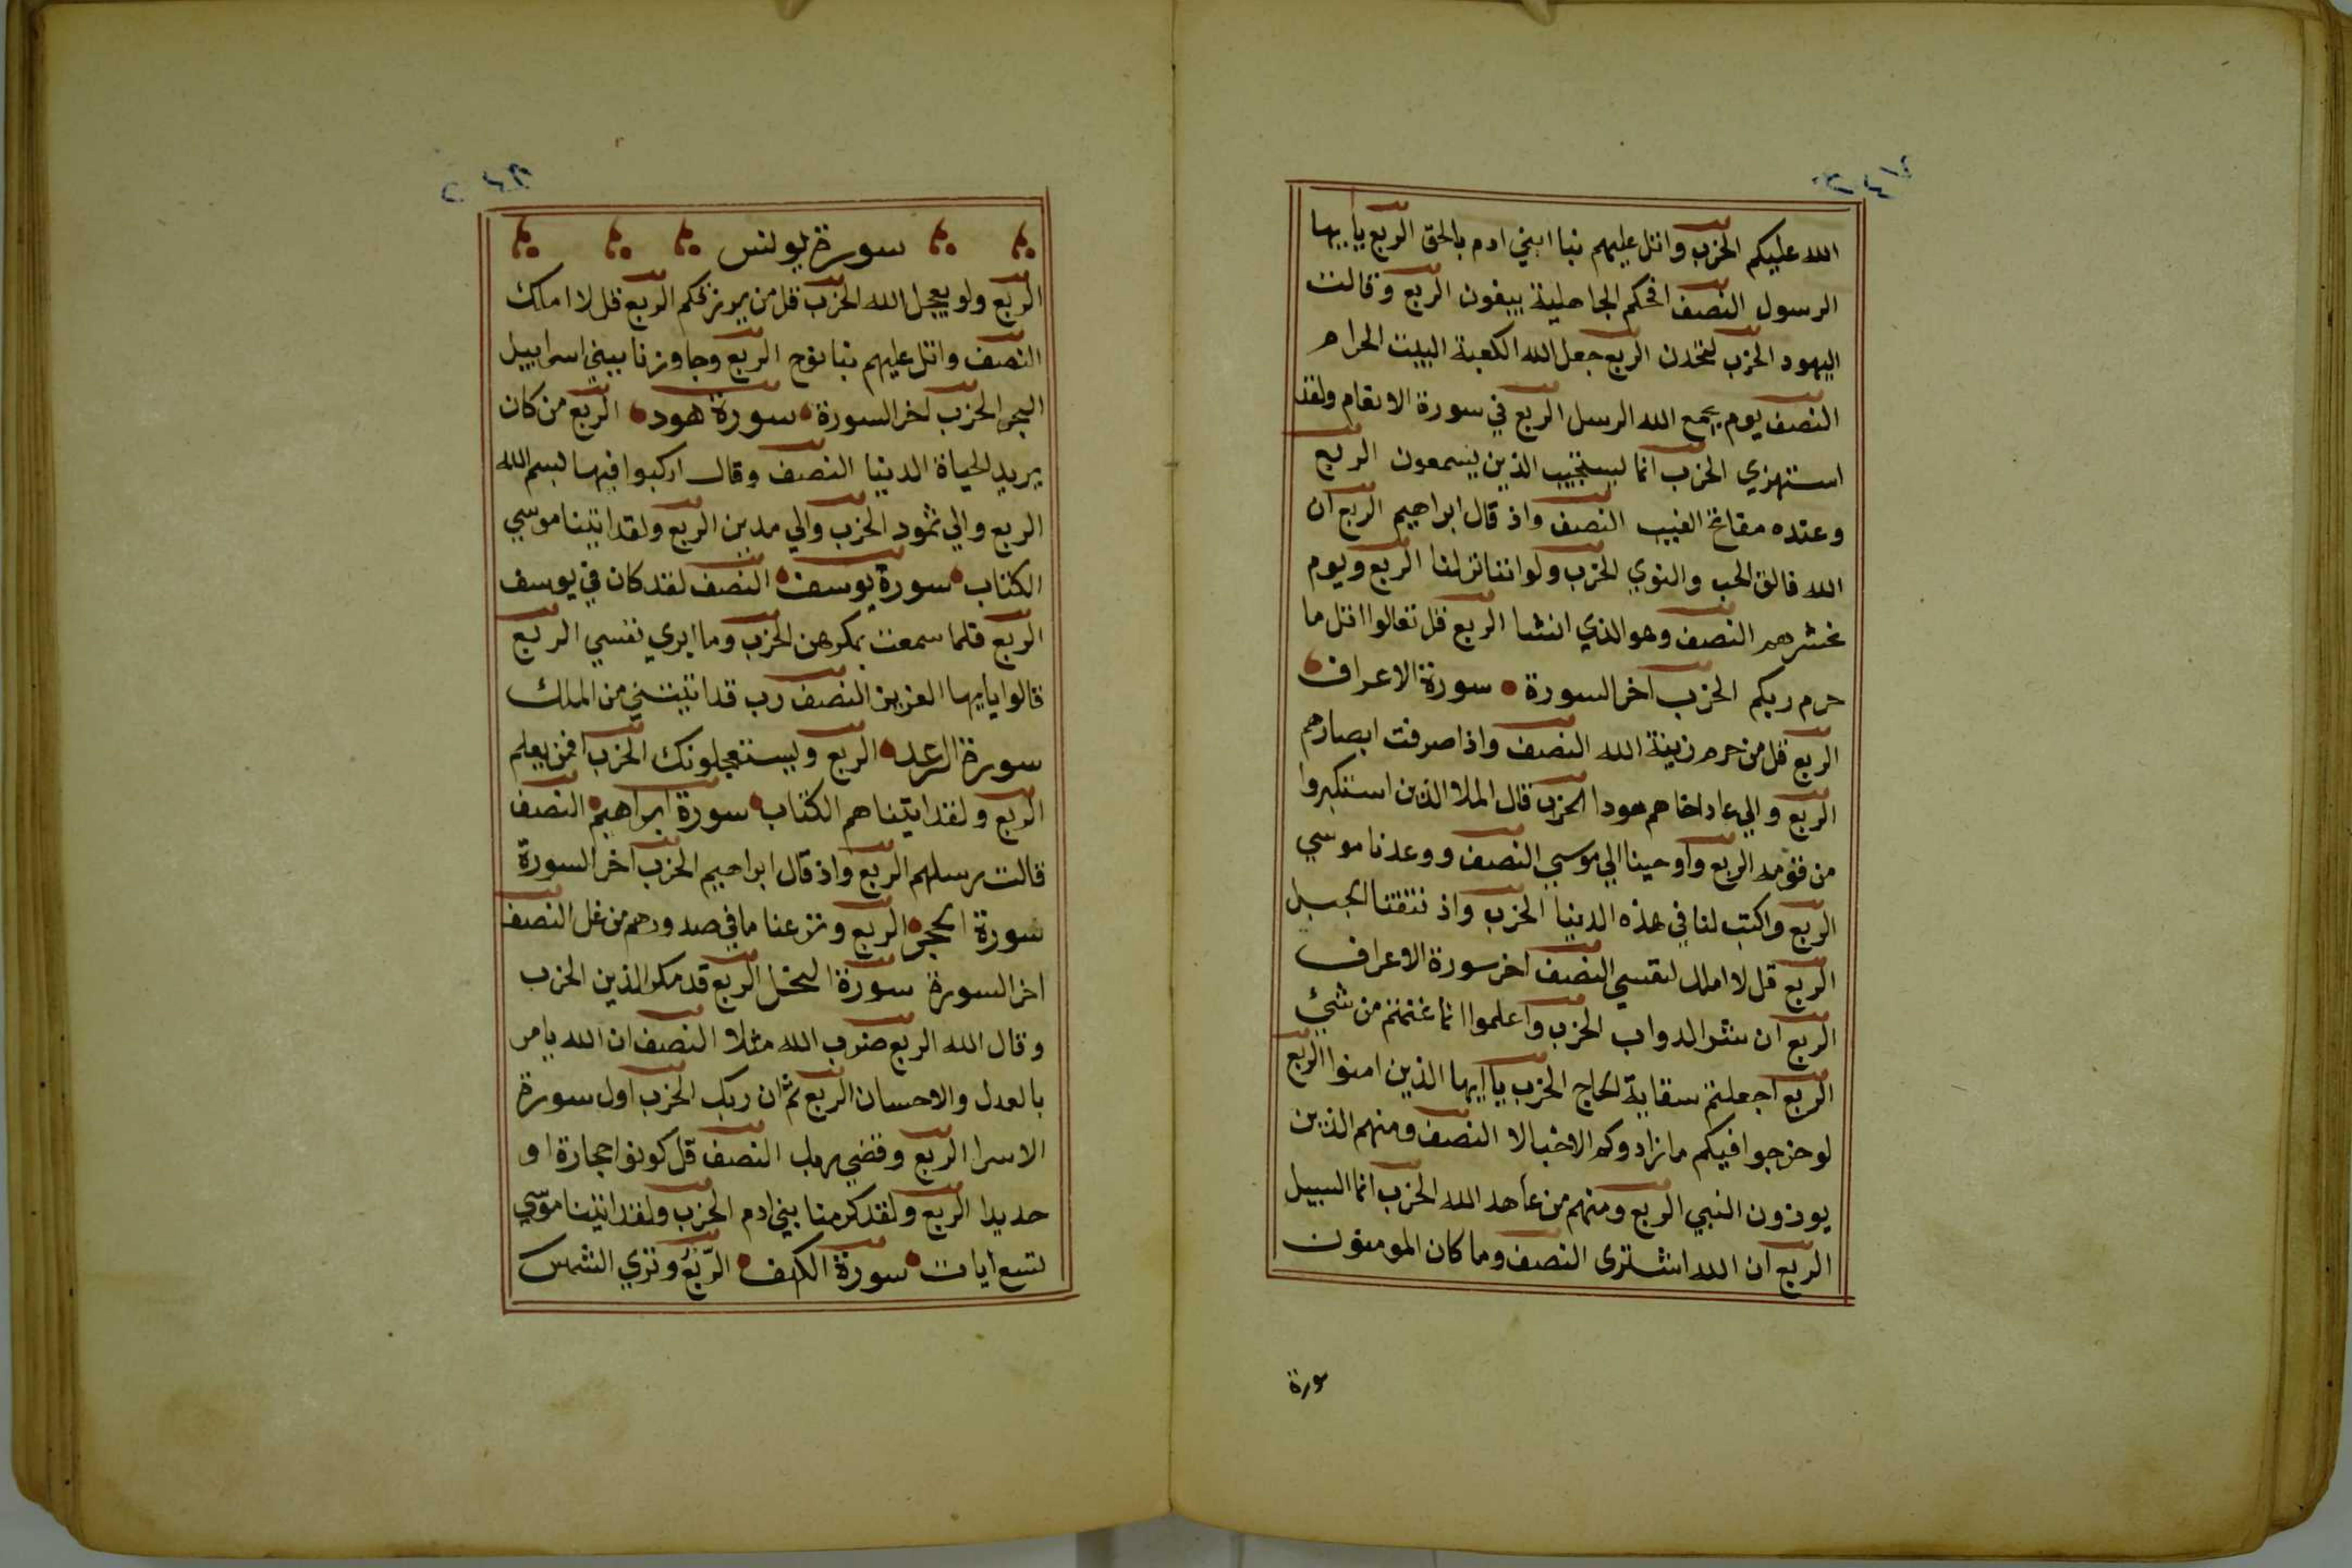 الله عليكم الحزب واتل عليهم نبا ابني ادم بالحق الربع يا ايها
الرسول النصف افحكم الجاهلية يبغون الربع وقالت
اليهود الحزب لتجدن الربع جعل الله الكعبة البيت الحرام
النصف يوم يجمع الله الرسل الربع في سورة الانعام ولقد
استهزي الحزب انما يستجيب الذين يسمعون الربع
وعنده مفاتح الغيب النصف واذ قال ابراهيم الربع ان
الله فالق الحب والنوي الحزب ولو اننا نزلنا الربع ويوم
نحشرهم النصف وهو الذي انشا الربع قل تعالوا اتل ما
حرم ربكم الحزب اخر السورة سورة الاعراف
الربع قل من حرم زينة الله النصف واذا صرفت ابصارهم
الربع والي عاد اخاهم هودا الحزب قال الملا الذين استكبروا
من قومه الربع واوحينا الي موسي النصف ووعدنا موسي
الربع واكتب لنا في هذه الدنيا الحزب واذ نتقنا الجبل
الربع قل لا املك لنفسي النصف اخر سورة الاعراف
الربع ان شر الدواب الحزب واعلموا انما غنمتم من شيئ
الربع اجعلتم سقاية الحاج الحزب يا ايها الذين امنوا الربع
لو خرجوا فيكم ما زادوكم الا خبالا النصف ومنهم الذين
يوذون النبي الربع ومنهم من عاهد الله الحزب انما السبيل
الربع ان الله اشترى النصف وما كان المومنون
سورة
سورة يونس
الربع ولو يعجل الله الحزب قل من يرزقكم الربع قل لا املك
النصف واتل عليهم نبا نوح الربع وجاوزنا ببني اسراييل
البحر الحزب اخر السورة سورة هود الربع من كان
يريد الحياة الدنيا النصف وقال اركبوا فيها بسم الله
الربع والي ثمود الحزب والي مدين الربع ولقد اتينا موسي
الكتاب سورة يوسف النصف لقد كان في يوسف
الربع فلما سمعت بمكرهن الحزب وما ابري نفسي الربع
قالوا يا ايها العزيز النصف رب قد اتيتني من الملك
سورة الرعد الربع ويستعجلونك الحزب افمن يعلم
الربع ولقد اتيناهم الكتاب سورة ابراهيم النصف
قالت رسلهم الربع واذ قال ابراهيم الحزب اخر السورة
سورة الحجر الربع ونزعنا ما في صدورهم من غل النصف
اخر السورة سورة النحل الربع قد مكر الذين الحزب
وقال الله الربع ضرب الله مثلا النصف ان الله يامر
بالعدل والاحسان الربع ثم ان ربك الحزب اول سورة
الاسرا الربع وقضي ربك النصف قل كونوا حجارة او
حديدا الربع ولقد كرمنا بني ادم الحزب ولقد اتينا موسي
تسع ايات سورة الكهف الربع وتري الشمس